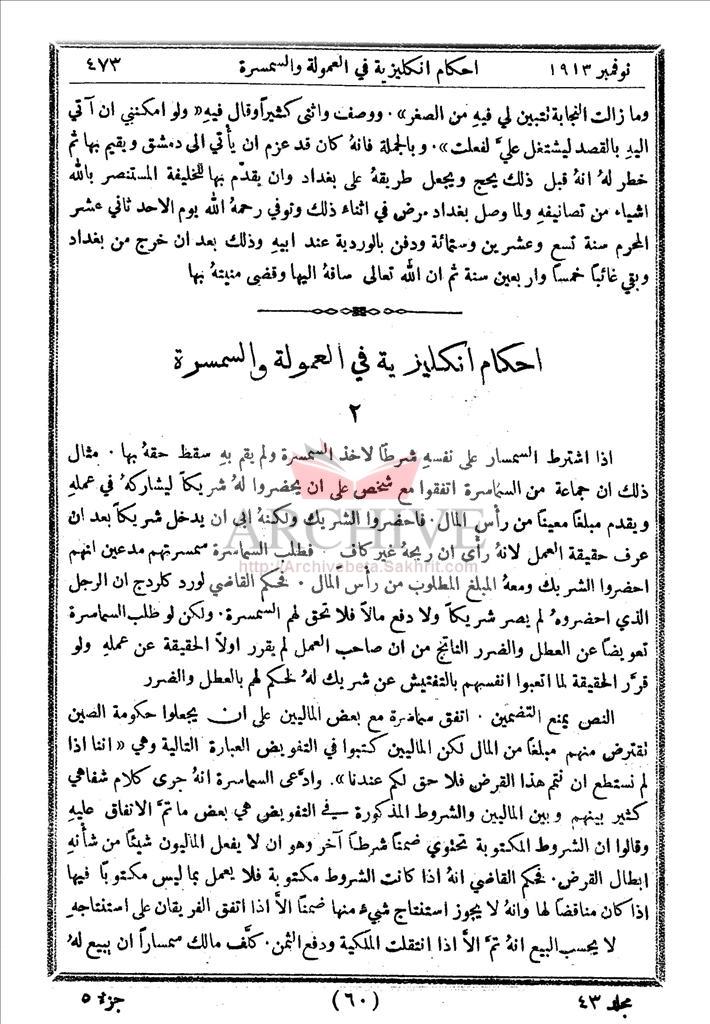 نوفمبر ١٩١٣ احكام انكليزية في العمولة والسمسرة ٤٧٣
وما زالت النجابة تتبين لي فيهِ من الصغر». ووصف واثنى كثيراً وقال فيهِ «ولو امكنني ان آتي
اليهِ بالقصد ليشتغل عليَّ لفعلت». وبالجملة فانهُ كان قد عزم ان يأتي الى دمشق ويقيم بها ثم
خطر لهُ انهُ قبل ذلك يحج ويجعل طريقهُ على بغداد وان يقدّم بها للخليفة المستنصر بالله
اشياء من تصانيفهِ ولما وصل بغداد مرض في اثناء ذلك وتوفي رحمهُ الله يوم الاحد ثاني عشر
المحرم سنة تسع وعشرين وستمائة ودفن بالوردية عند ابيهِ وذلك بعد ان خرج من بغداد
وبقي غائباً خمساً واربعين سنة ثم ان الله تعالى ساقهُ اليها وقضى منيتهُ بها
احكام انكليزية في العمولة والسمسرة
٢
اذا اشترط السمسار على نفسهِ شرطاً لاخذ السمسرة ولم يقم بهِ سقط حقهُ بها . مثال
ذلك ان جماعة من السماسرة اتفقوا مع شخص على ان يحضروا لهُ شريكاً ليشاركهُ في عملهِ
ويقدم مبلغاً معيناً من رأس المال . فاحضروا الشريك ولكنهُ ابى ان يدخل شريكاً بعد ان
عرف حقيقة العمل لانهُ رأى ان ربحهُ غير كاف . فطلب السماسرة سمسرتهم مدعين انهم
احضروا الشريك ومعهُ المبلغ المطلوب من رأس المال . فحكم القاضي لورد كلردج ان الرجل
الذي احضروهُ لم يصر شريكاً ولا دفع مالاً فلا تحق لهم السمسرة . ولكن لو طلب السماسرة
تعويضاً عن العطل والضرر الناتج من ان صاحب العمل لم يقرر اولاً الحقيقة عن عملهِ ولو
قرَّر الحقيقة لما اتعبوا انفسهم بالتفتيش عن شريك لهُ لحكم لهم بالعطل والضرر
النص يمنع التضمين . اتفق سماسرة مع بعض الماليين على ان يجعلوا حكومة الصين
تقترض منهم مبلغاً من المال لكن الماليين كتبوا في التفويض العبارة التالية وهي «اننا اذا
لم نستطع ان نتم هذا القرض فلا حق لكم عندنا». وادَّعى السماسرة انهُ جرى كلام شفاهي
كثير بينهم وبين الماليين والشروط المذكورة في التفويض هي بعض ما تمَّ الاتفاق عليهِ
وقالوا ان الشروط المكتوبة تحتوي ضمناً شرطاً آخر وهو ان لا يفعل الماليون شيئاً من شأنهِ
ابطال القرض . فحكم القاضي انهُ اذا كانت الشروط مكتوبة فلا يعمل بما ليس مكتوباً فيها
اذا كان مناقضاً لها وانهُ لا يجوز استنتاج شيءٍ منها ضمناً الاَّ اذا اتفق الفريقان على استنتاجهِ
لا يحسب البيع انهُ تمَّ الاَّ اذا انتقلت الملكية ودفع الثمن . كلَّف مالك سمساراً ان يبيع لهُ
مجلد ٤٣ (٦٠) جزء ٥
ARCHIVE
http://Archivebeta.Sakhrit.com